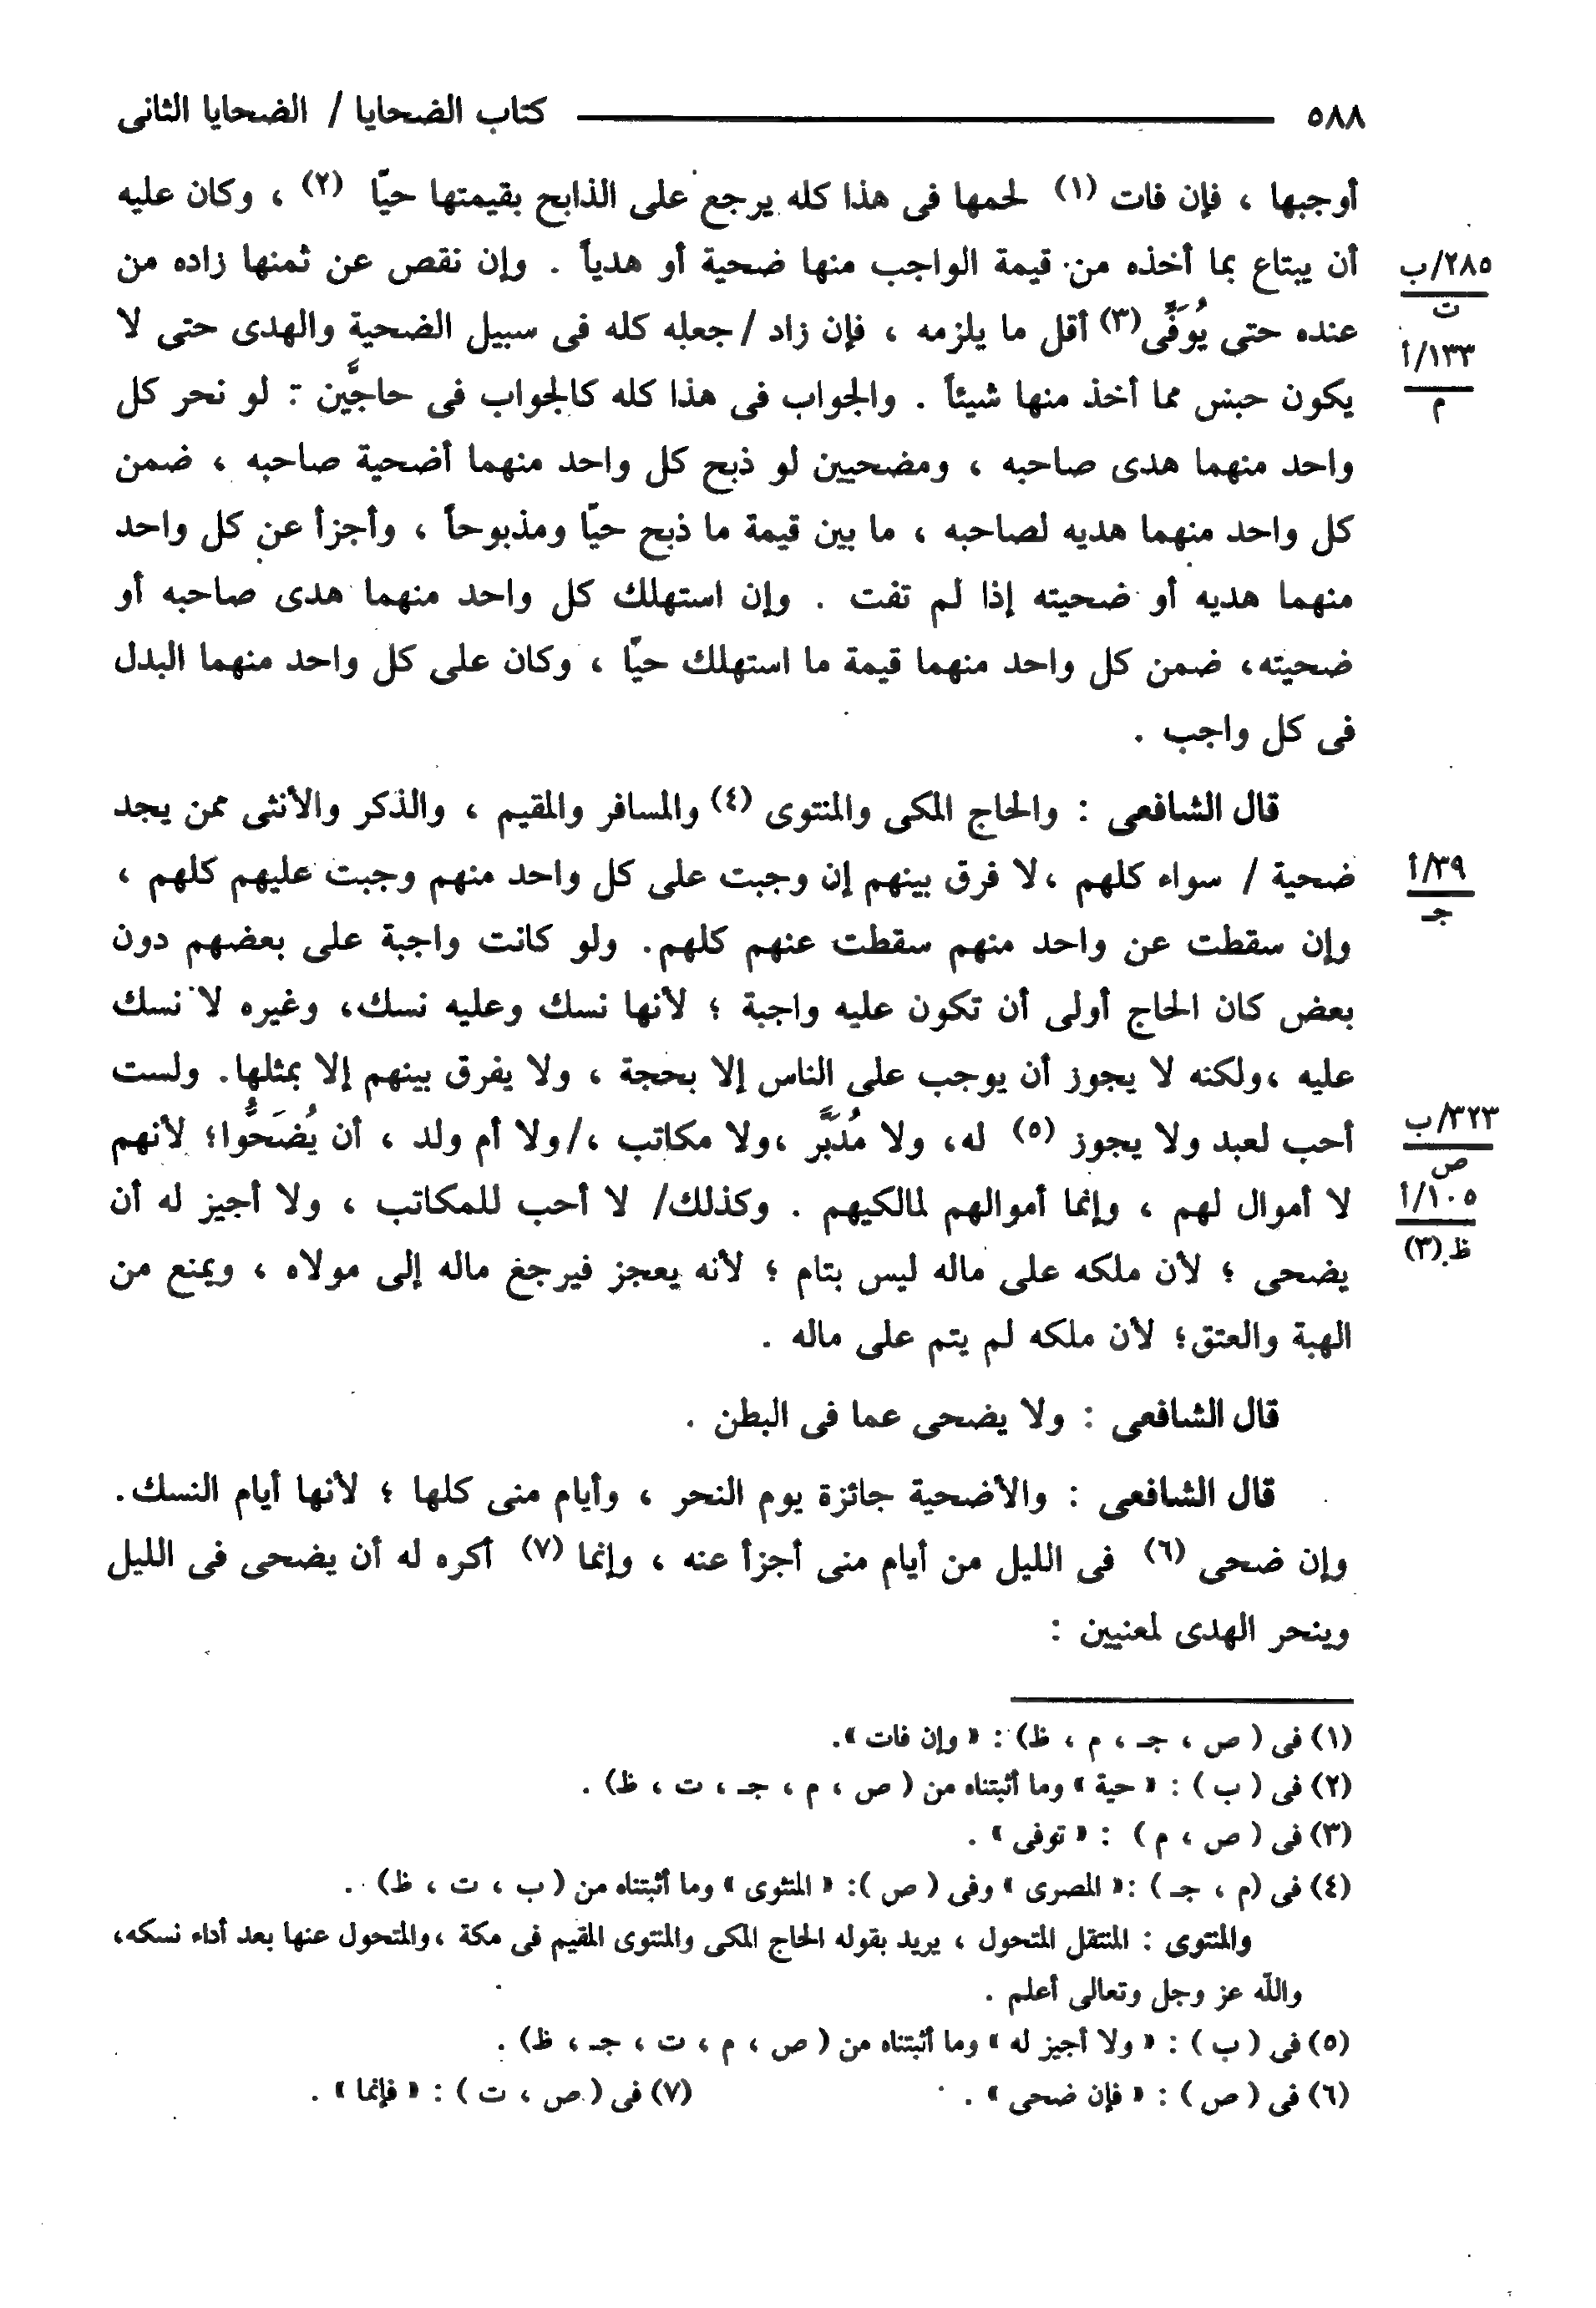 ٥٨٨ كتاب الضحايا / الضحايا الثانى
أوجبها ، فإن فات (١) لحمها فى هذا كله يرجع على الذابح بقيمتها حيّا (٢) ، وكان عليه
أن يبتاع بما أخذه من قيمة الواجب منها ضحية أو هدياً . وإن نقص عن ثمنها زاده من
٢٨٥/ب
ت
عنده حتى يُوَفَّى(٣) أقل ما يلزمه ، فإن زاد / جعله كله فى سبيل الضحية والهدى حتى لا
١٣٣/أ
م
يكون حبس مما أخذ منها شيئاً . والجواب فى هذا كله كالجواب فى حاجَّين : لو نحر كل
واحد منهما هدى صاحبه ، ومضحيين لو ذبح كل واحد منهما أضحية صاحبه ، ضمن
كل واحد منهما هديه لصاحبه ، ما بين قيمة ما ذبح حيّا ومذبوحاً ، وأجزأ عن كل واحد
منهما هديه أو ضحيته إذا لم تفت . وإن استهلك كل واحد منهما هدى صاحبه أو
ضحيته، ضمن كل واحد منهما قيمة ما استهلك حيّا ، وكان على كل واحد منهما البدل
فى كل واجب .
قال الشافعى : والحاج المكى والمنتوى (٤) والمسافر والمقيم ، والذكر والأنثى ممن يجد
ضحية / سواء كلهم ،لا فرق بينهم إن وجبت على كل واحد منهم وجبت عليهم كلهم ،
٣٩/أ
جـ
وإن سقطت عن واحد منهم سقطت عنهم كلهم. ولو كانت واجبة على بعضهم دون
بعض كان الحاج أولى أن تكون عليه واجبة ؛ لأنها نسك وعليه نسك، وغيره لا نسك
عليه ،ولكنه لا يجوز أن يوجب على الناس إلا بحجة ، ولا يفرق بينهم إلا بمثلها. ولست
أحب لعبد ولا يجوز (٥) له، ولا مُدَبَّر ،ولا مكاتب ،/ولا أم ولد ، أن يُضَحُّوا؛ لأنهم
٣٢٣/ب
ص
لا أموال لهم ، وإنما أموالهم لمالكيهم . وكذلك/ لا أحب للمكاتب ، ولا أجيز له أن
١٠٥/أ
ظ(٣)
يضحى ؛ لأن ملكه على ماله ليس بتام ؛ لأنه يعجز فيرجع ماله إلى مولاه ، ويمنع من
الهبة والعتق؛ لأن ملكه لم يتم على ماله .
قال الشافعى : ولا يضحى عما فى البطن .
قال الشافعى : والأضحية جائزة يوم النحر ، وأيام منى كلها ؛ لأنها أيام النسك.
وإن ضحى (٦) فى الليل من أيام منى أجزأ عنه ، وإنما (٧) أكره له أن يضحى فى الليل
وينحر الهدى لمعنيين :
(١) فى ( ص ، جـ ، م ، ظ) : « وإن فات ».
(٢) فى ( ب ) : « حية » وما أثبتناه من ( ص ، م ، جـ ، ت ، ظ) .
(٣) فى ( ص ، م ) : « توفى » .
(٤) فى (م ، جـ ) :« المصرى » وفى ( ص ): « المنثوى » وما أثبتناه من ( ب ، ت ، ظ) .
والمنتوى : المنتقل المتحول ، يريد بقوله الحاج المكى والمنتوى المقيم فى مكة ،والمتحول عنها بعد أداء نسكه،
واللّه عز وجل وتعالى أعلم .
(٥) فى ( ب ) : « ولا أجيز له » وما أثبتناه من ( ص ، م ، ت ، جـ ، ظ) .
(٦) فى ( ص ) : « فإن ضحى » . (٧) فى ( ص ، ت ) : « فإنما » .